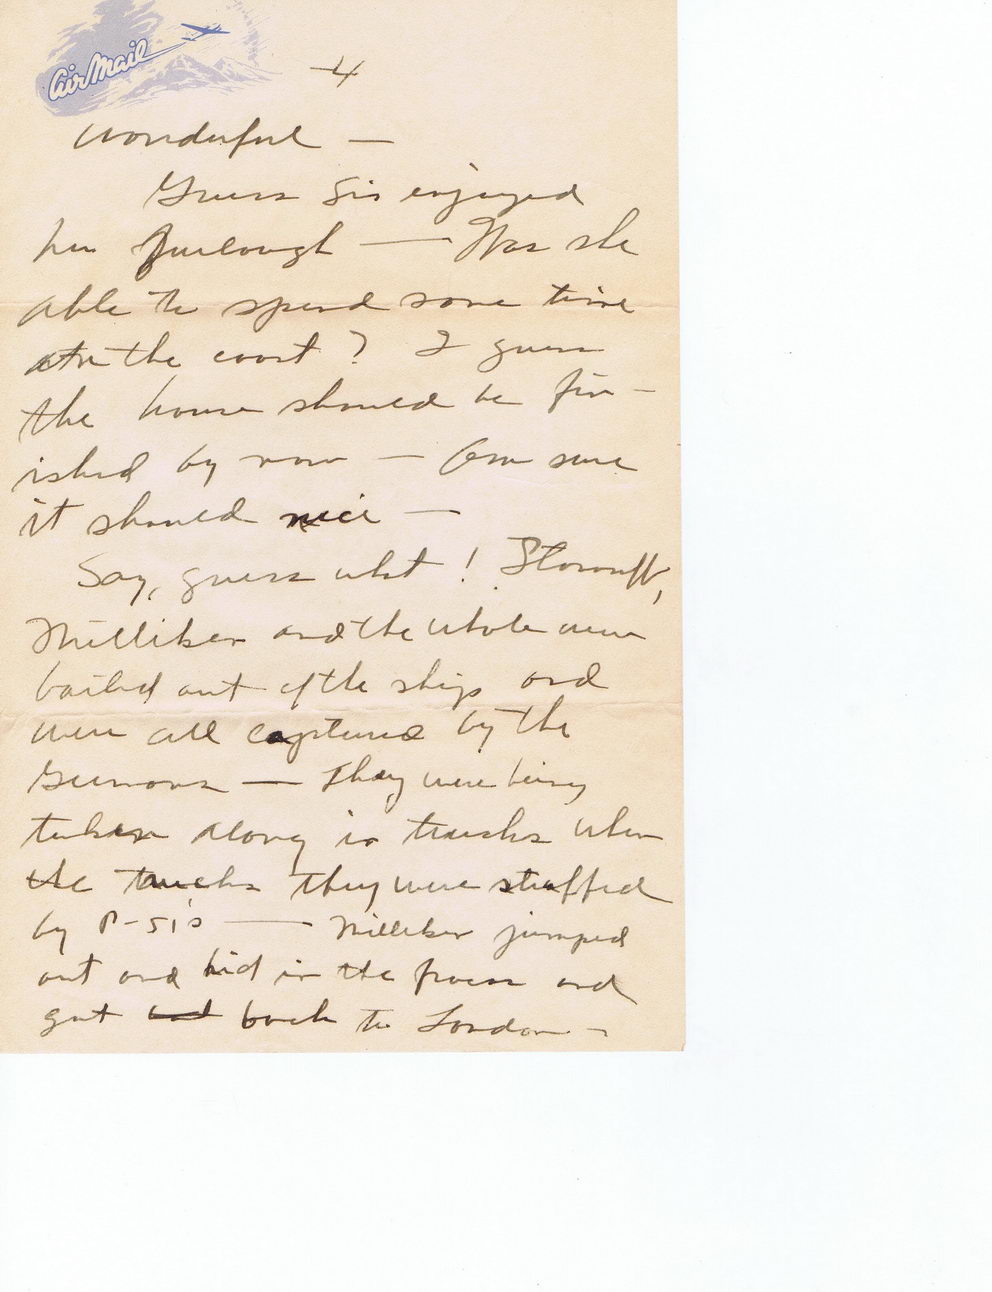 Air Mail
-4
wonderful —
Guess Sis enjoyed
her furlough — Was she
able to spend some time
at the coast? I guess
the house should be fin-
ished by now — Am sure
it should nice —
Say, guess what!
Milliken and the whole crew
bailed out of the ship and
were all captured by the
Germans — They were being
taken along in trucks when
the trucks they were straffed
by P-51's — Milliken jumped
out and hid in the and
got back to London -